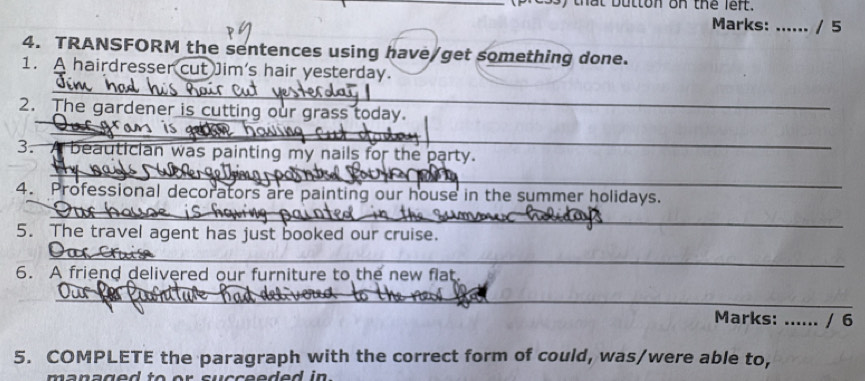 that button on the left.
Marks: ...... / 5
4. TRANSFORM the sentences using have/get something done.
1. A hairdresser cut Jim's hair yesterday.
Jim had his hair cut yesterday
2. The gardener is cutting our grass today.
Our grass is having cut today
3. A beautician was painting my nails for the party.
My nails were getting painted for the party
4. Professional decorators are painting our house in the summer holidays.
Our house is having painted in the summer holidays
5. The travel agent has just booked our cruise.
Our cruise
6. A friend delivered our furniture to the new flat.
Our furniture had delivered to the new flat
Marks: ...... / 6
5. COMPLETE the paragraph with the correct form of could, was/were able to,
managed to or succeeded in.